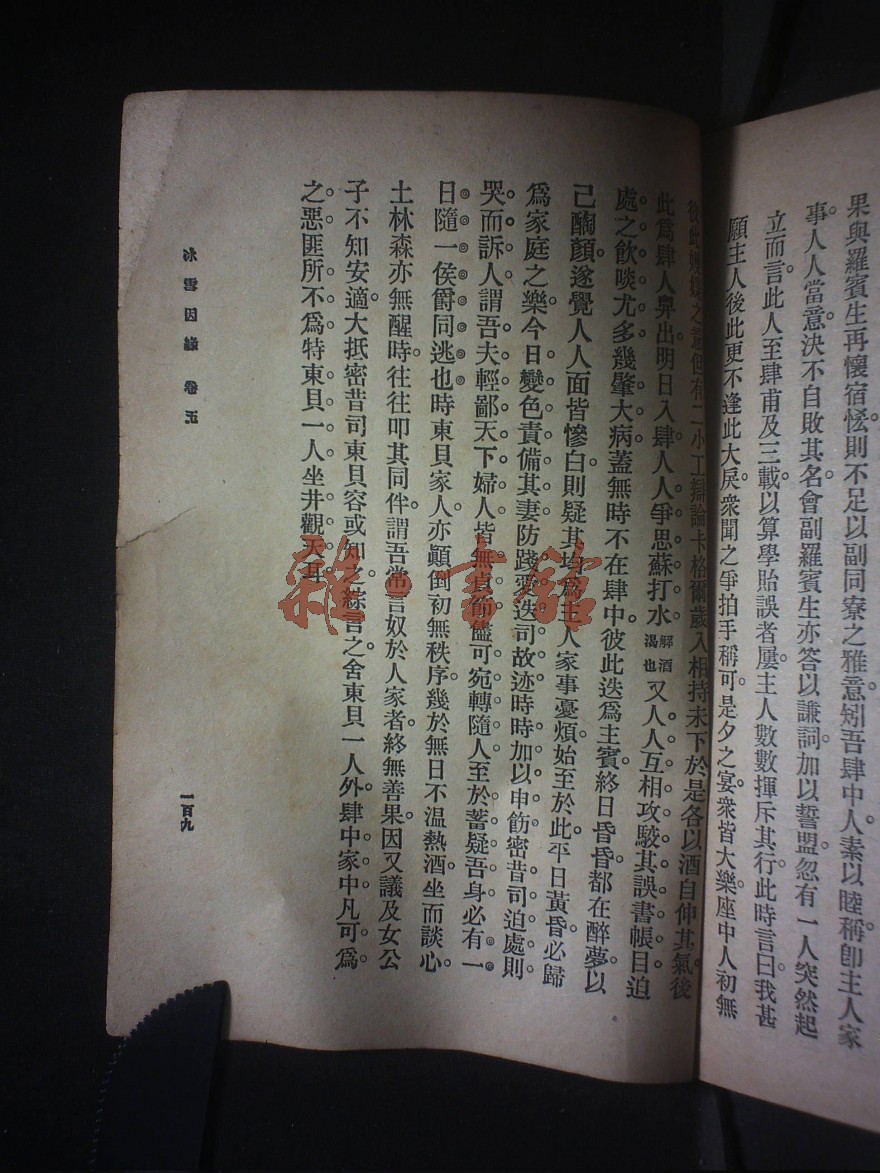 果與羅賓生再懷宿怨則不足以副同寮之雅意矧吾肆中人素以睦稱卽主人家
事人人當意決不自敗其名會副羅賓生亦答以謙詞加以誓盟忽有一人突然起
立而言此人至肆甫及三載以算學貽誤者屢主人數數揮斥其行此時言曰我甚
願主人後此更不逢此大戾衆聞之爭拍手稱可是夕之宴衆皆大樂座中人初無
後此之意但有二小工辯論卡格爾歲入相持未下於是各以酒自伸其氣後
此爲肆人舁出明日入肆人人爭思蘇打水解酒渴也又人人互相攻駮其誤書帳目迫
處之飮啖尤多幾肇大病蓋無時不在肆中彼此迭爲主賓終日昏昏都在醉夢以
己酶顏遂覺人人面皆慘白則疑其均爲主人家事憂煩始至於此平日黃昏必歸
爲家庭之樂今日變色責備其妻防踐愛迭司故迹時時加以申飭密昔司迫處則
哭而訴人謂吾夫輕鄙天下婦人皆無貞節儘可宛轉隨人至於蓄疑吾身必有一
日隨一侯爵同逃也時東貝家人亦顚倒初無秩序幾於無日不温熱酒坐而談心
土林森亦無醒時往往叩其同伴謂吾常言奴於人家者終無善果因又議及女公
子不知安適大抵密昔司東貝容或知之綜言之舍東貝一人外肆中家中凡可爲
之惡匪所不爲特東貝一人坐井觀天耳
冰雪因緣 卷五
一百九
雜·書館